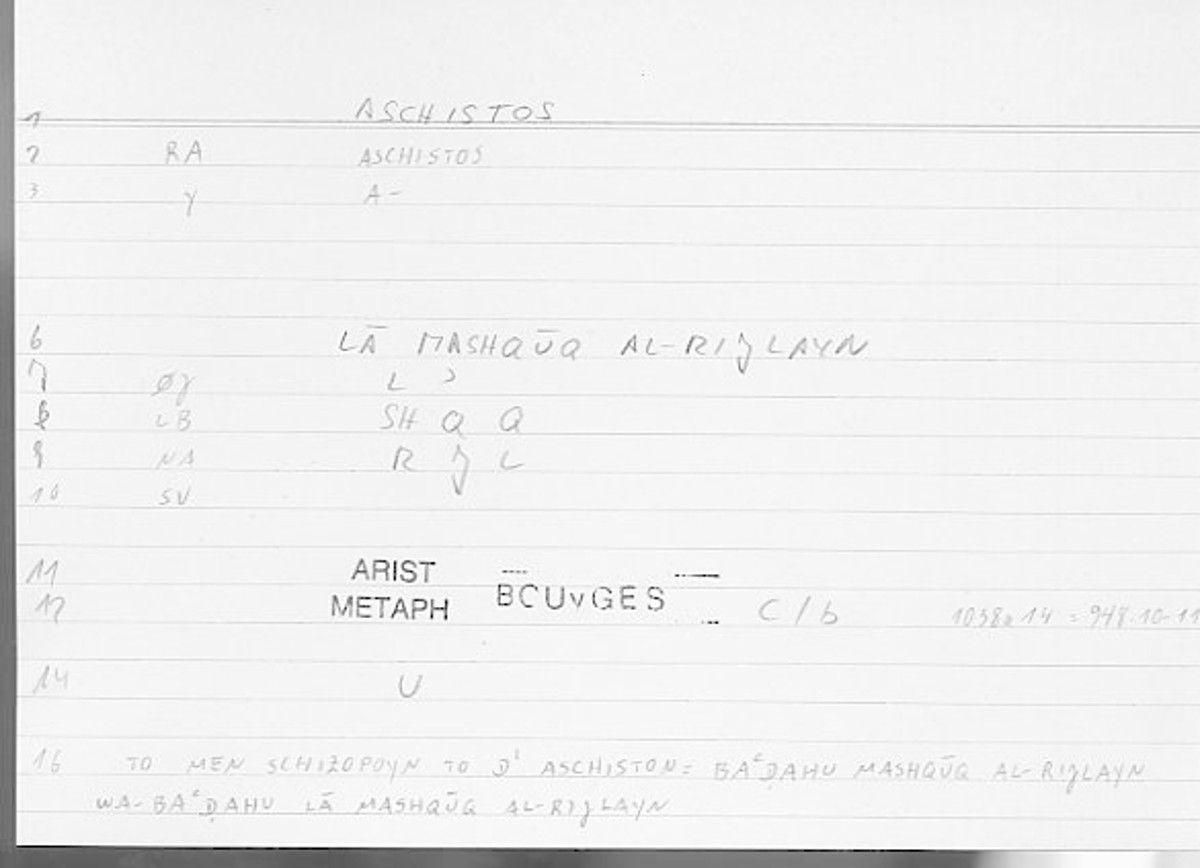 1 ASCHISTOS
2 RA ASCHISTOS
3 γ A-
6 LĀ MASHQŪQ AL-RIJLAYN
7 ØJ L ʾ
8 LB SH Q Q
9 NA R J L
10 SV
11 ARIST
12 METAPH BCUvGES C/b 1038a14 = 948.10-11
14 U
16 TO MEN SCHIZOPOYN TO D' ASCHISTON = BAʿḌAHU MASHQŪQ AL-RIJLAYN
WA-BAʿḌAHU LĀ MASHQŪQ AL-RIJLAYN